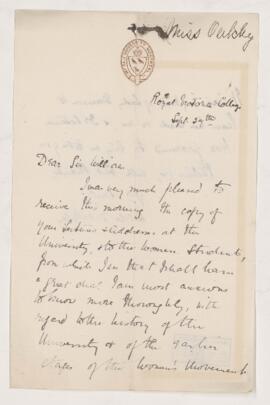 Miss
Royal Victoria College
Sept. 29th
Dear Sir William
I was very much pleased to
receive this morning the copy of
your Lectures & Addresses at the
University, & to the Women Students,
from which I see that I shall learn
a great deal. I am most anxious
to know more thoroughly, with
regard to the history of the
University & of the earlier
stages of the Women's Movement